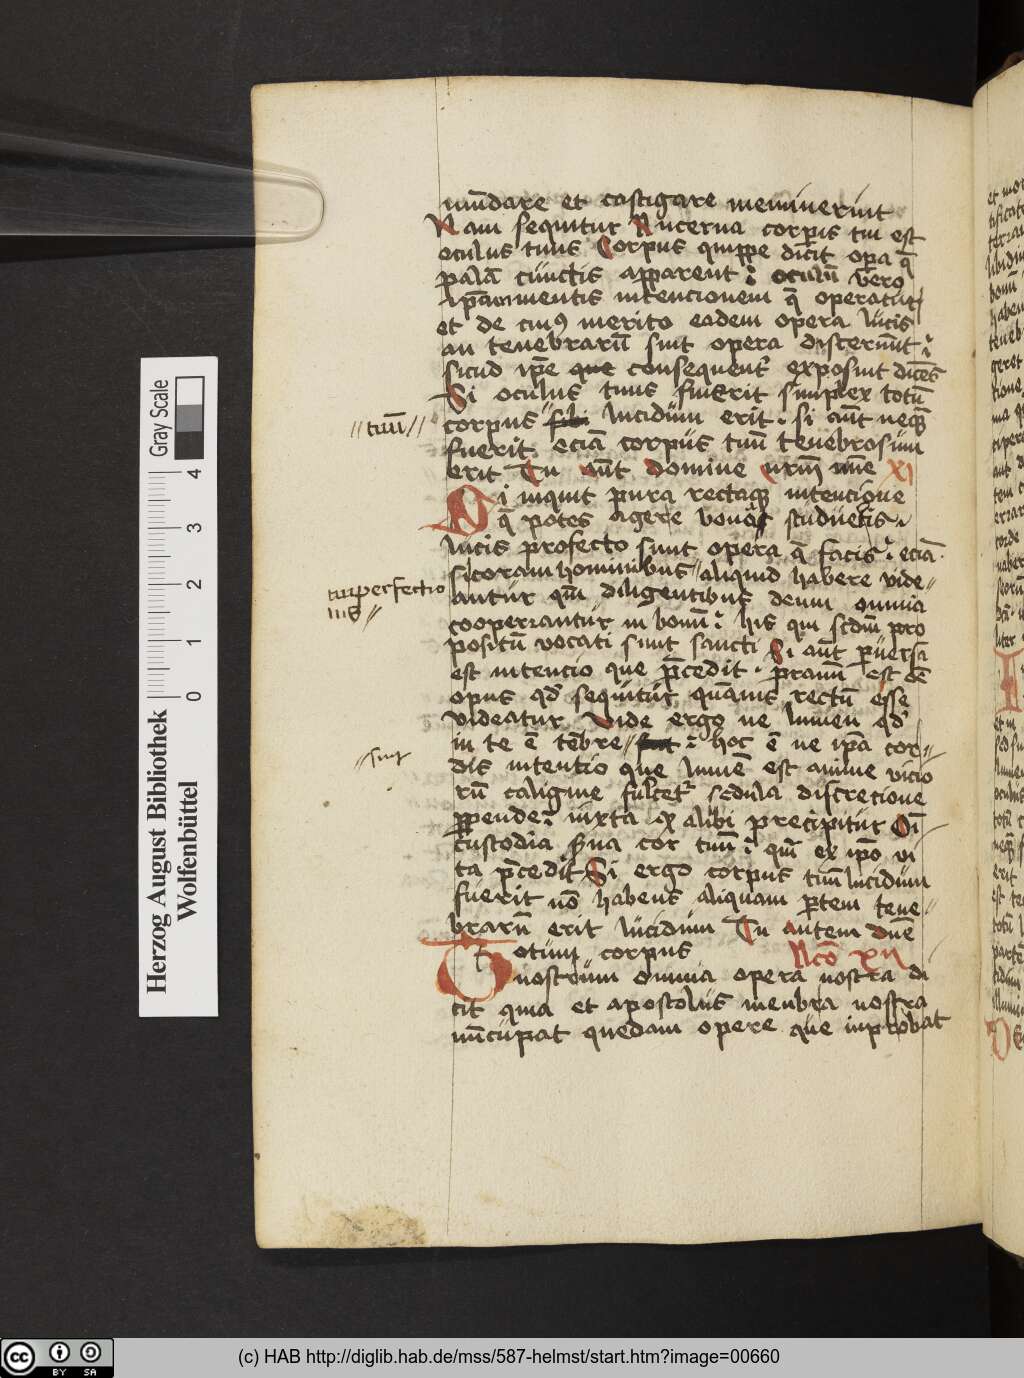 mūdare et castigare meminerint
Nam sequitur Lucerna corpīs tui est
oculus tuus Corpus quippe dicit opa q̄
palā cūnctis apparent : oculū vero
ip̄am mentis intencionem q̄ operatur
et de cuiꝰ merito eadem opera lucis
an tenebrarū sint opera discernūt
sicud ip̄e que consequent᷑ exposuit dicēs
Si oculus tuus fuerit simplex totū
//tuū// corpus lucidum erit . si aūt neq̄
fuerit eciā corpus tuū tenebrosum
erit Tu aūt domine nr̄m me XI
Si inquit pura rectaqꝫ intencione
q̄ potes agere bona studueris .
lucis profecto sunt opera q̄ facis : eciā
si coram hominibus // aliquid habere vide//
imperfectio
nis//
antur qm̄ diligentibus deum omnia
cooperiantur in bonū : his qui sc̄dm pro
positū vocati sunt sancti Si aūt ꝑuersa
est intencio que p̄cedit . prauū est oē
opus qd̓ sequitur quāuis rectū esse
videatur Vide ergo ne lumen qd̓
//sint in te ē tēbre// : hoc ē ne ip̄a cor//
dis intentio que lumē est anime vicio
rū caligine fulcet᷑ sedula discretione
ꝑpende : iuxta qd alibi precipitur Oī
custodia s̄ua cor tuū : qm̄ ex ip̄o vi
ta p̄cedit Si ergo corpus tuū lucidum
fuerit nō habens aliquam ꝑtem tene//
brarū erit lucidum Tu autem dn̄e
Totum corpus Lc̄o XII
nostrum omnia opera nostra di
cit quia et apostolus menbra nostra
nūcupat quedam opere que inprobat
Herzog August Bibliothek
Wolfenbüttel
Gray Scale
0 1 2 3 4
(c) HAB http://diglib.hab.de/mss/587-helmst/start.htm?image=00660
cc BY SA